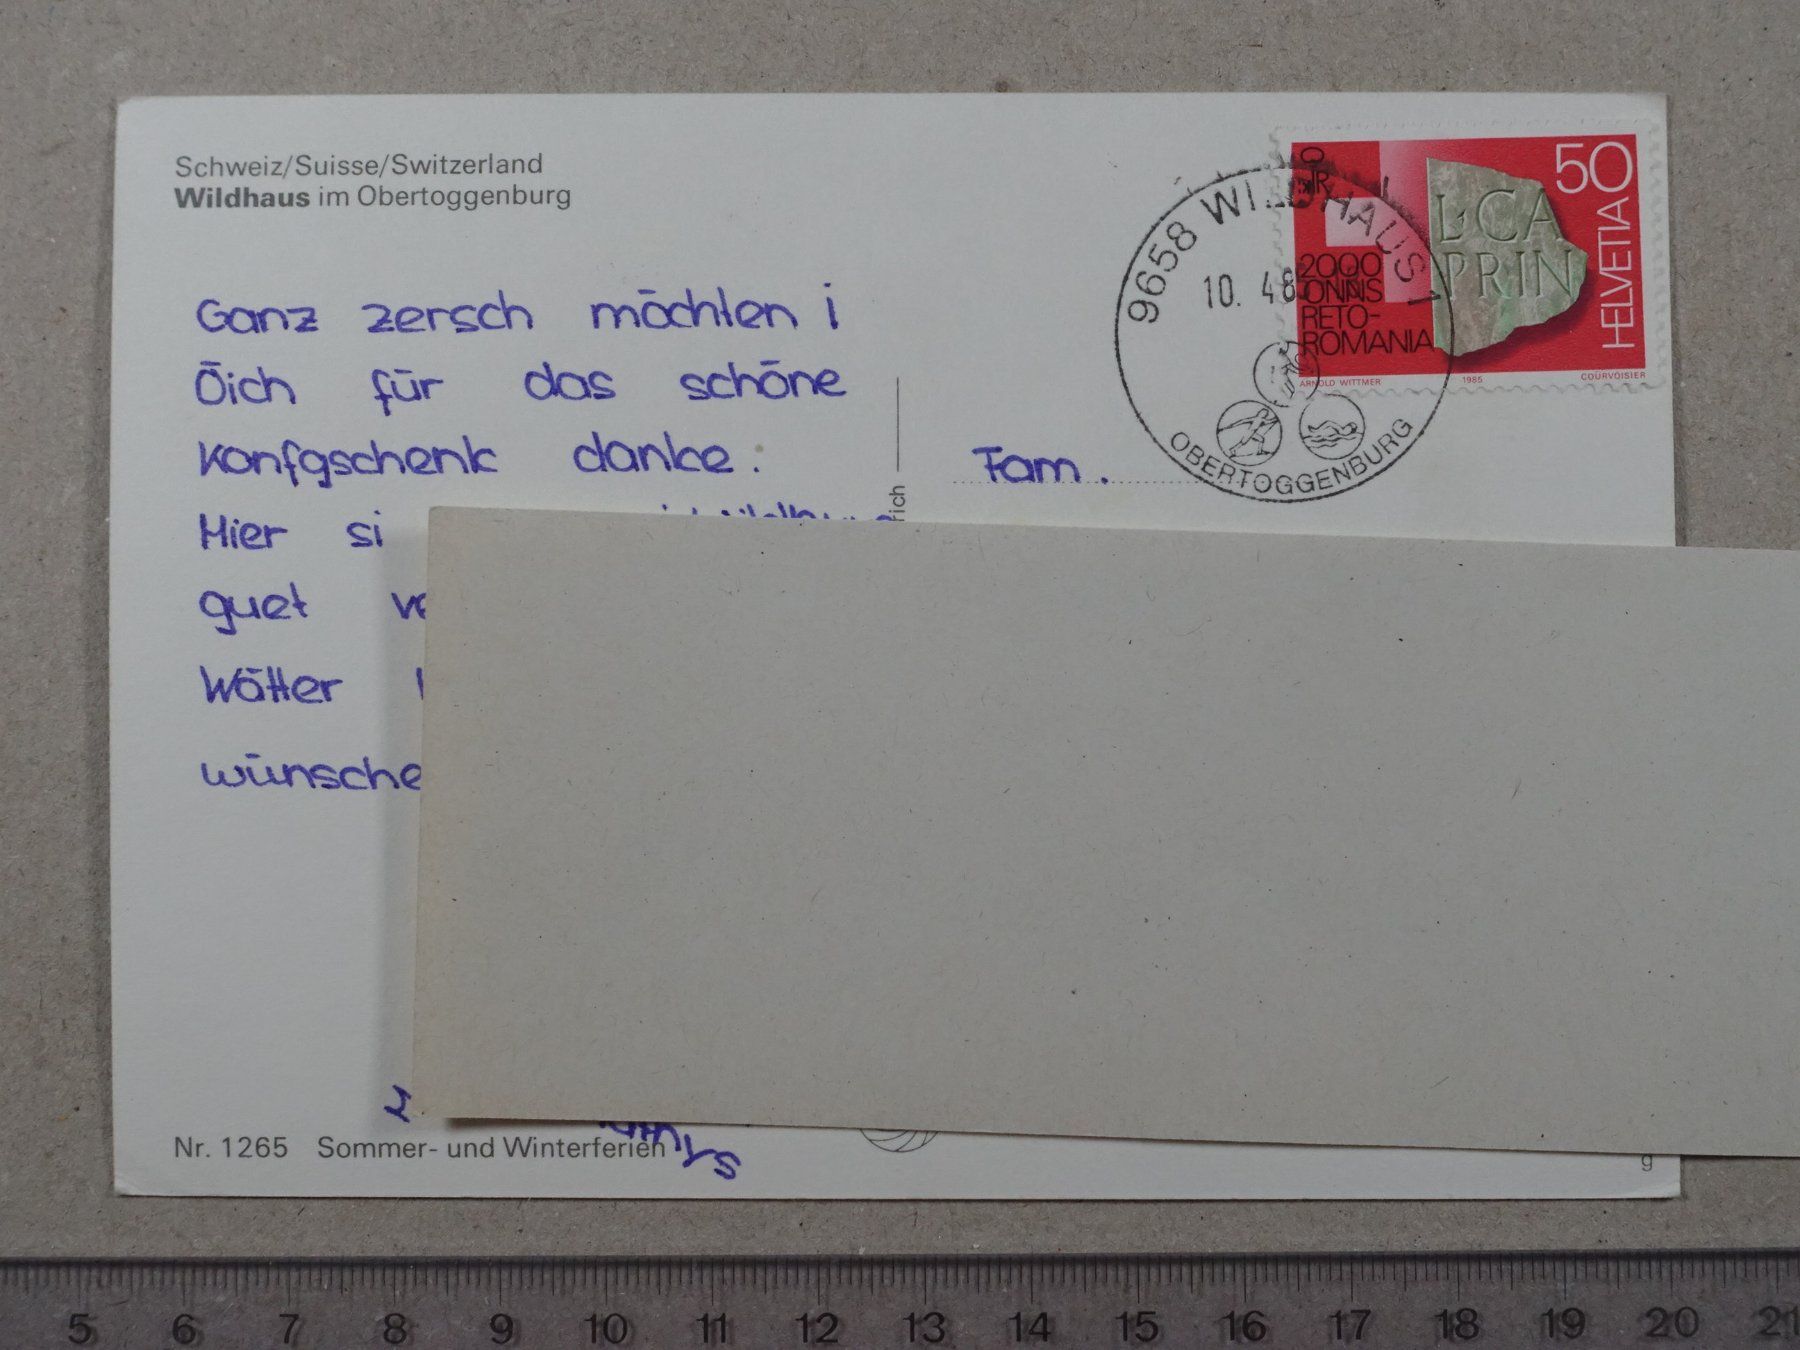 Schweiz/Suisse/Switzerland
Wildhaus im Obertoggenburg
Ganz zersch möchten i
Öich für das schöne
Konfgschenk danke.
Hier si
guet
Wätter
wünsche
Fam.
9658 WILDHAUS 1
10. 4 8
OBERTOGGENBURG
50
HELVETIA
L·CA
PRIN
2000
ONNS
RETO-
ROMANIA
ARNOLD WITTMER
1985
COURVOISIER
Nr. 1265 Sommer- und Winterferien
5 6 7 8 9 10 11 12 13 14 15 16 17 18 19 20 21